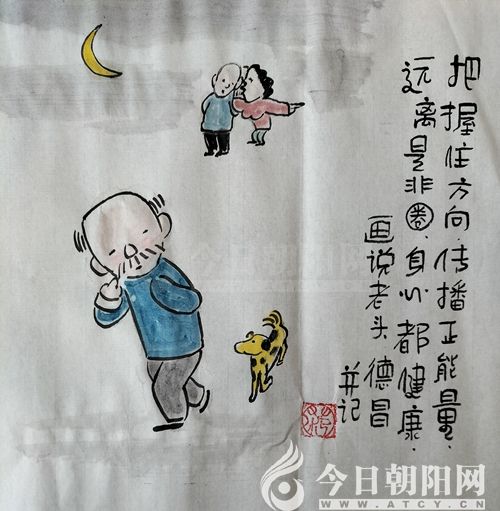 把握住方向.传播正能量.
远离是非圈.身心都健康.
画说老头德昌
并记
今日朝阳网
WWW.ATCY.CN